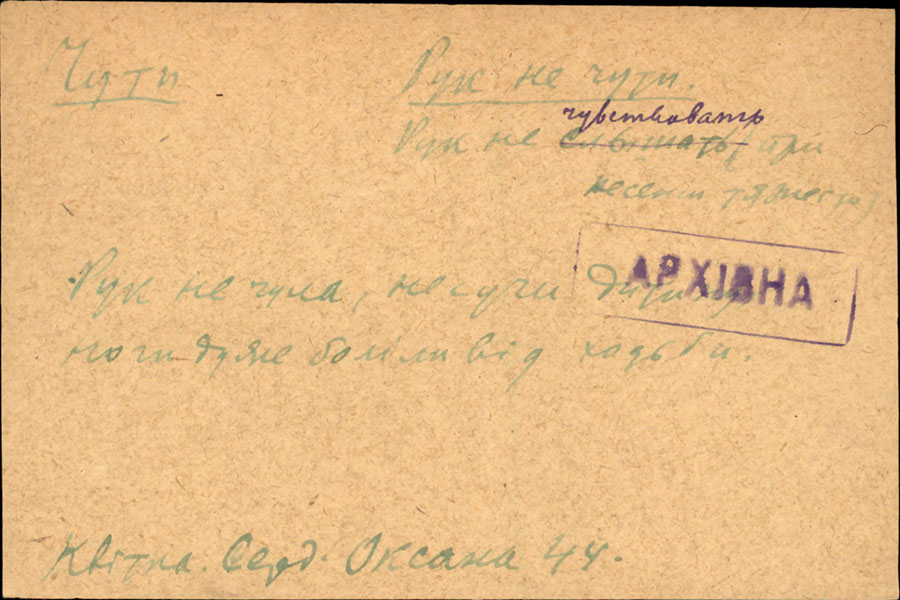 Чути
Рук не чути.
чувствовать
Рук не слышать, при
несении тяжести)
Рук не чула, несучи дитину
АРХІВНА
ноги дуже боліли від ходьби.
Квітка. Серд. Оксана 44.